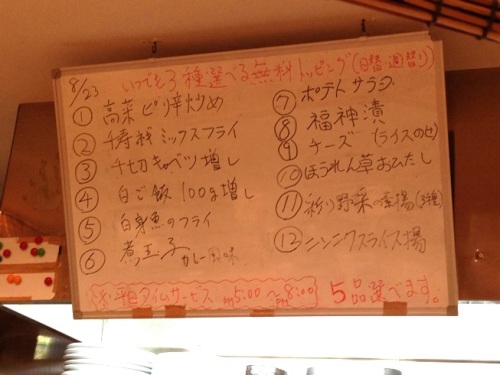 8/23 いつでも3種選べる無料トッピング(日替・週替り)
① 高菜ピリ辛炒め
② ミックスフライ
③ 千切キャベツ増し
④ 白ご飯100g増し
⑤ 白身魚のフライ
⑥ 煮玉子 カレー風味
⑦ ポテトサラダ
⑧ 福神漬
⑨ チーズ(ライスのせ)
⑩ ほうれん草おひたし
⑪ 彩り野菜の素揚(3種)
⑫ ニンニクスライス揚
タイムサービス PM5:00〜PM8:00 5品選べます。